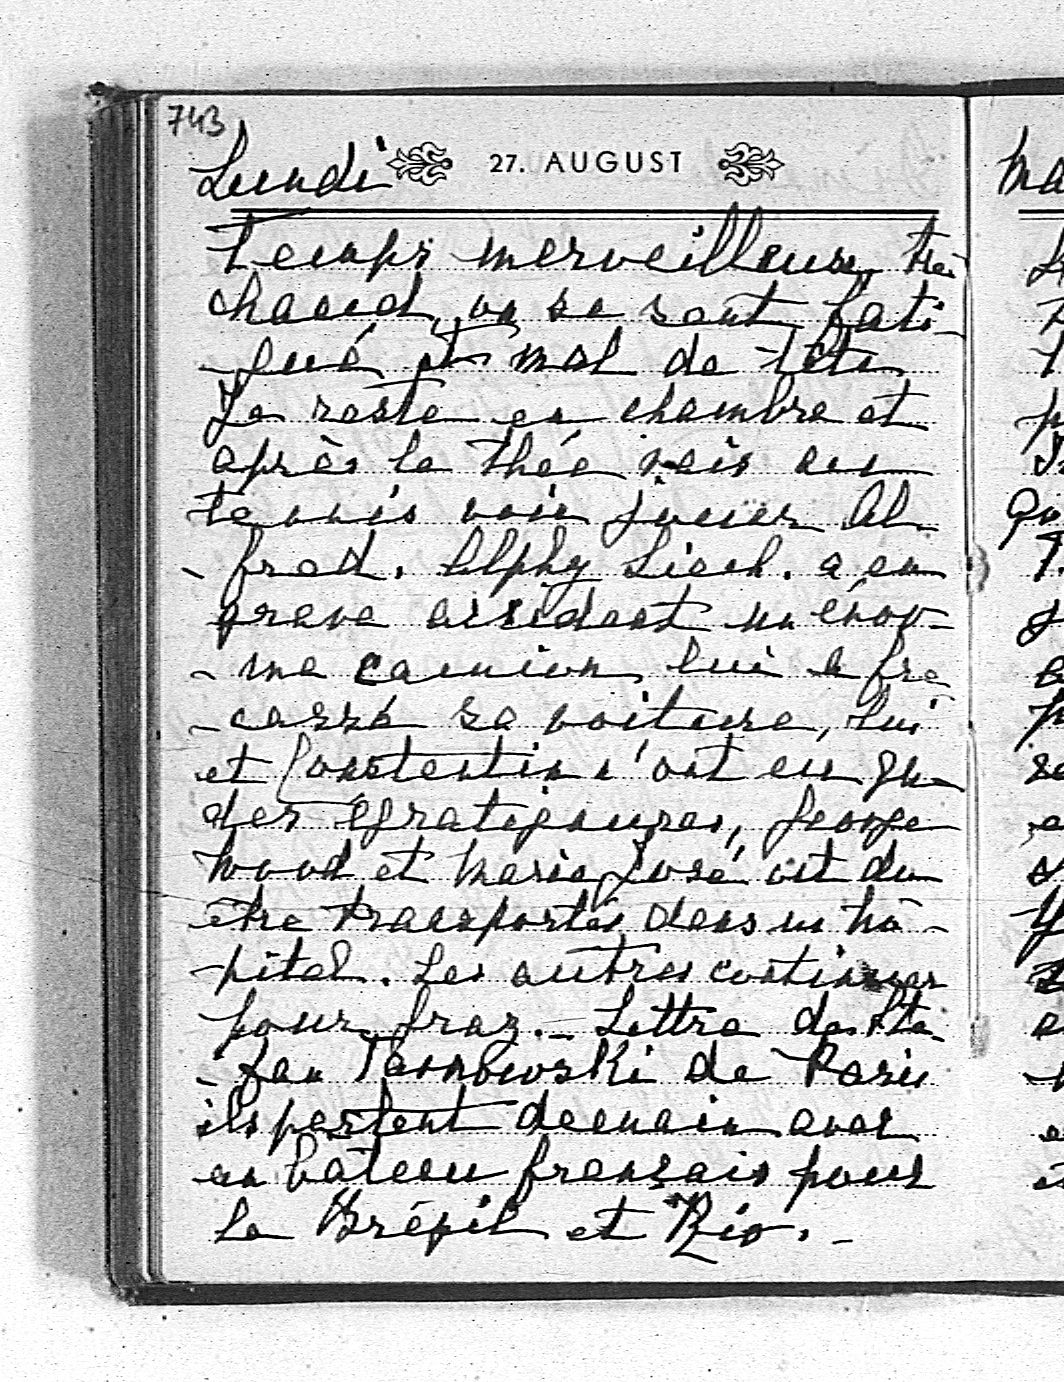 743
Lundi 27. AUGUST
Temps merveilleux, très
chaud, on se sent fati-
-gué et mal de tête
Je reste en chambre et
après le thée vais au
tennis voir jouer Al-
-fred. Alphy Liech. a eu
grave accident un énor-
-me camion lui a fra-
-cassé sa voiture, lui
et Constantin n'ont eu que
des égratignures, George
Wood et Marie José ont du
être transportés dans un hô-
-pital. Les autres continuer
pour Graz. - Lettre de Ste-
-fan Tarnowski de Paris
ils partent demain avec
un bâteau français pour
le Brésil et Rio. -